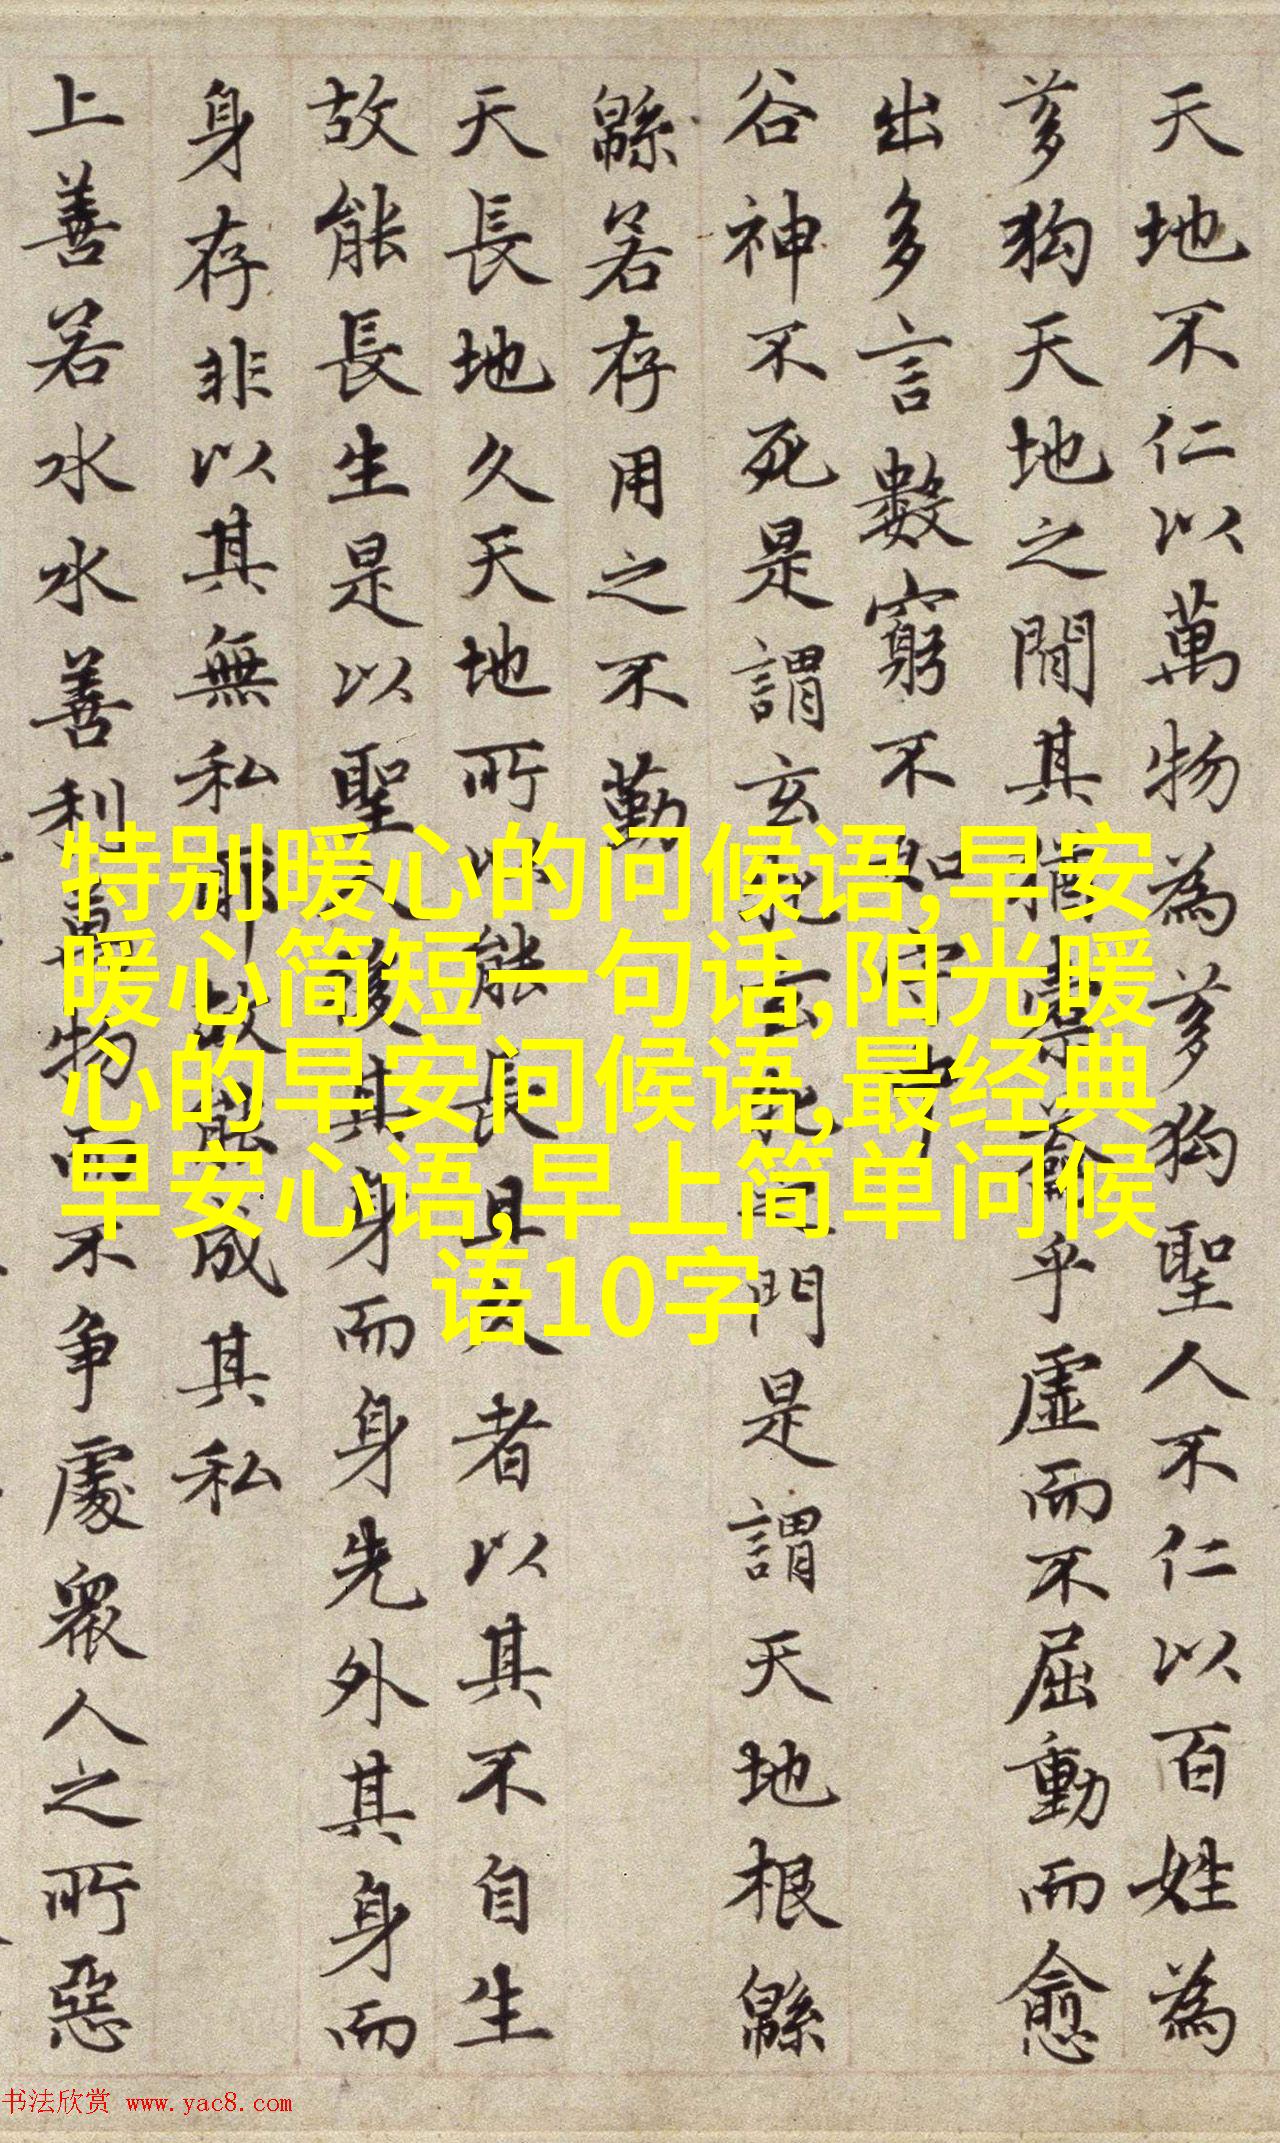 天地不仁以萬物為芻狗聖人不仁以百姓為
芻狗天地之間其猶橐籥乎虛而不屈動而愈
出多言數窮不如守中
谷神不死是謂玄牝玄牝之門是謂天地根緜
緜若存用之不勤
天長地久天地所以能長且久者以其不自生
故能長生是以聖人後其身而身先外其身而
身存非以其無私耶故能成其私
上善若水水善利萬物而不争處眾人之所惡
特别暖心的问候语,早安
暖心简短一句话,阳光暖
心的早安问候语,最经典
早安心语,早上简单问候
语10字
书法欣赏 www.yac8.com